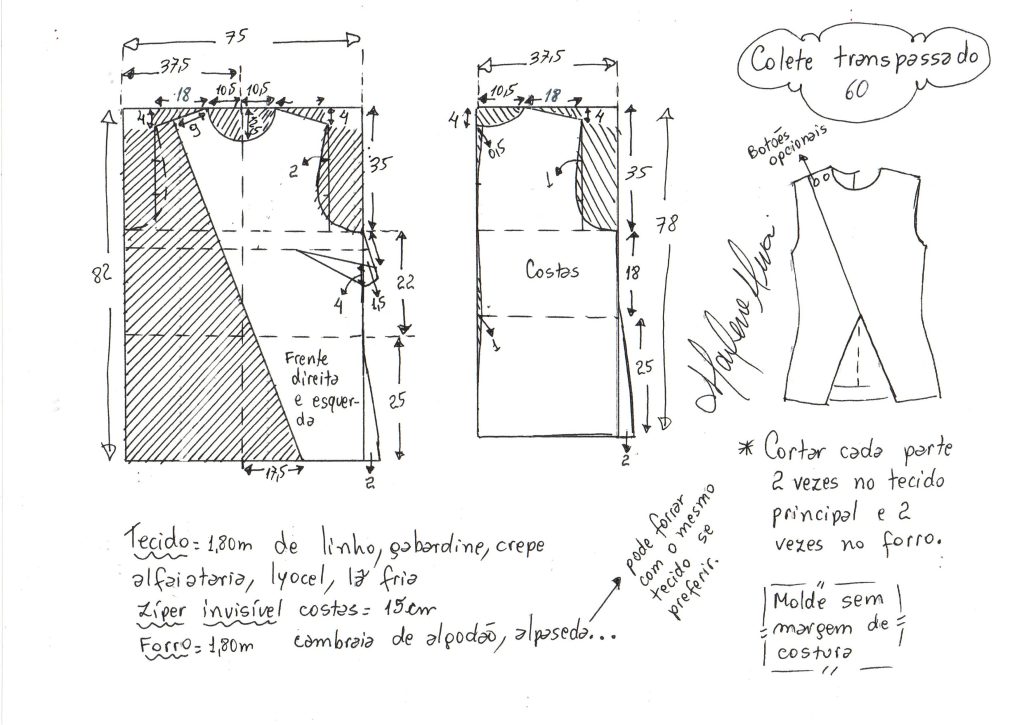 75
37,5
18
10,5
10,5
4
4
9
2
35
82
22
4
1,5
Frente
direita
e esquer-
da
25
17,5
2
37,5
10,5
18
4
4
0,5
1
35
78
Costas
18
1
25
2
Colete transpassado
60
Botões
opcionais
* Cortar cada parte
2 vezes no tecido
principal e 2
vezes no forro.
Tecido = 1,80m de linho, gabardine, crepe
alfaiataria, lyocel, lã fria
Zíper invisível costas = 15cm
Forro = 1,80m cambraia de algodão, alpaseda...
pode forrar
com o mesmo
tecido se
preferir.
Molde sem
margem de
costura